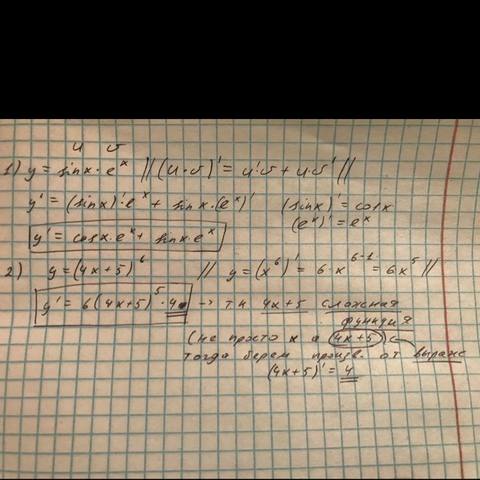 u v
1) y = sinx · e^x // (u·v)' = u'v + u·v' //
y' = (sinx)'·e^x + sinx·(e^x)' (sinx)' = cosx
(e^x)' = e^x
y' = cosx·e^x + sinx·e^x
2) y = (4x+5)^6 // y = (x^6)' = 6·x^(6-1) = 6x^5 //
y' = 6(4x+5)^5 · 4 → тк 4x+5 сложная
функция
(не просто x а 4x+5)
тогда берем произв. от выраже
(4x+5)' = 4